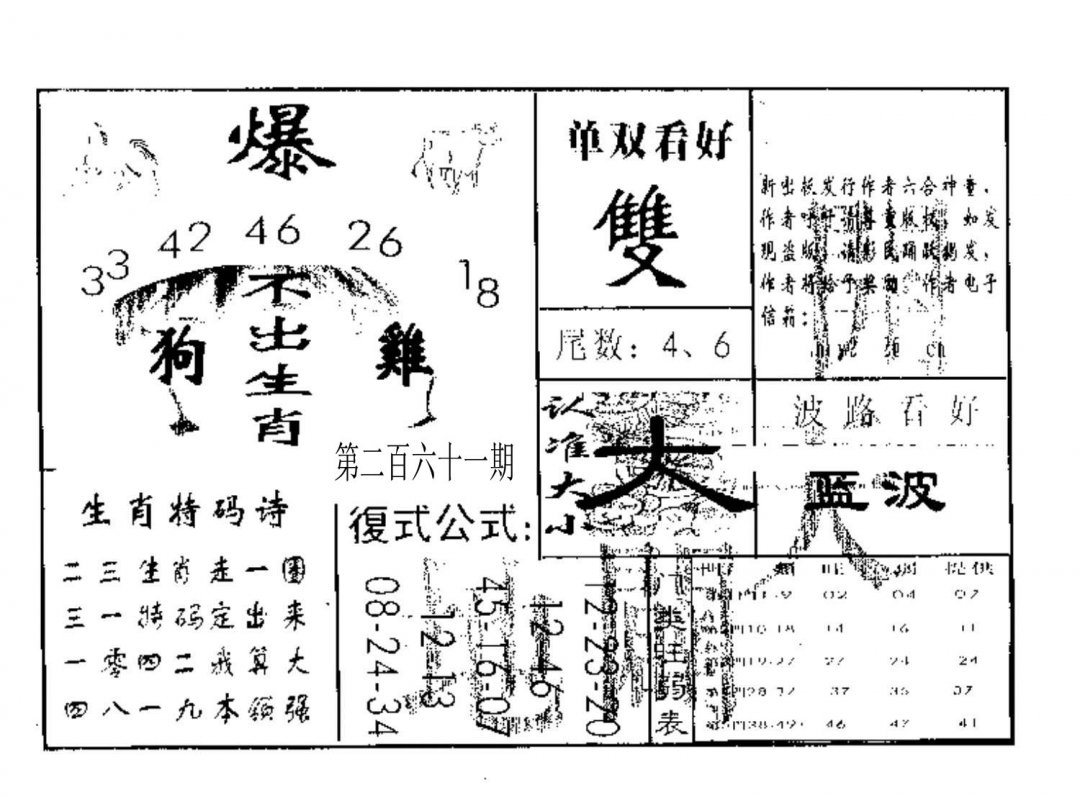 爆
33 42 46 26 18
不出生肖
狗
雞
第二百六十一期
单双看好
雙
尾数：4、6
新出板发行作者六合神童，
作者呼吁请尊重版权，如发
现盗版，请彩民踊跃揭发，
作者将给予奖励，作者电子
信箱：
认准大小
大
波路看好
蓝波
生肖特码诗
二三生肖走一圈
三一特码定出来
一零四二我算大
四八一九本领强
復式公式：
08-24-34
12 13
45-16-07
12-46
12-23-20
门类旺弱表
提供
02 04 07
10-18 14 16 11
19-27 27 24 24
28-37 37 35 37
38-49 46 47 41